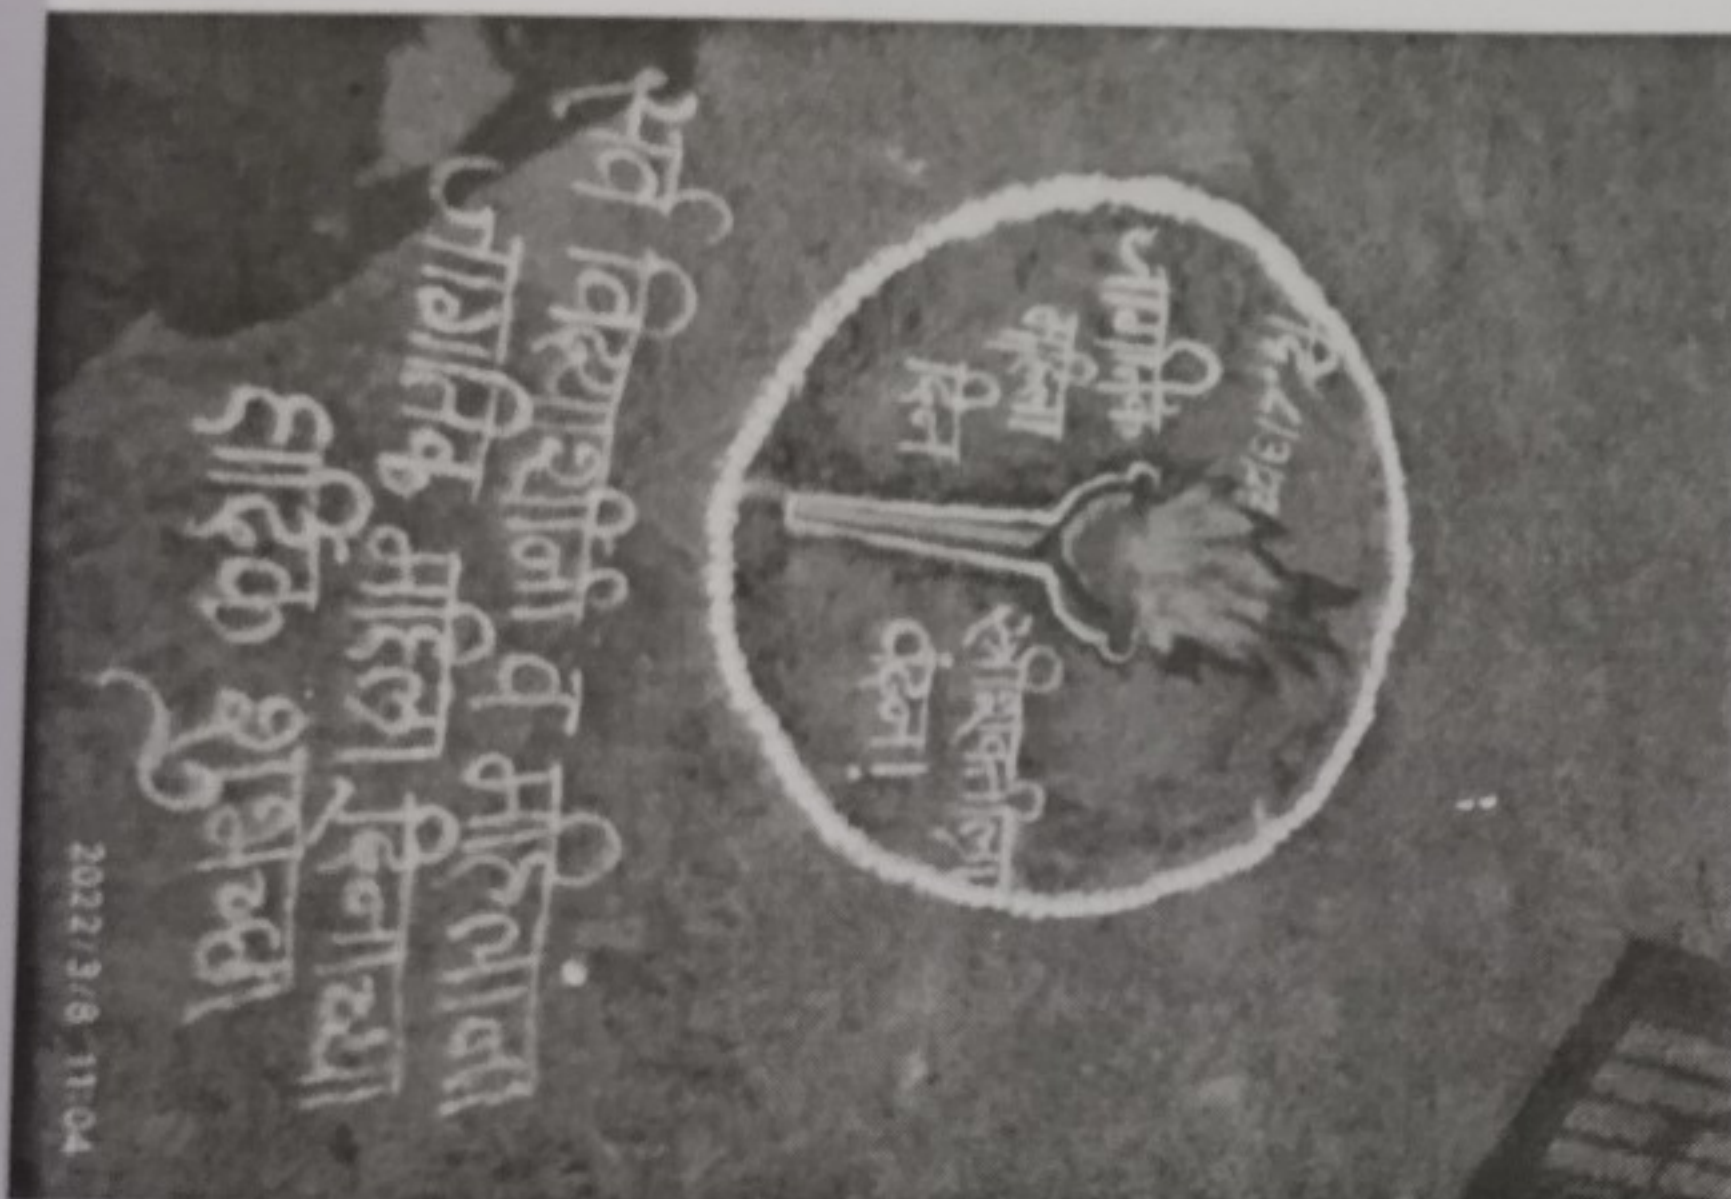 दि. 8/3/22
जागतिक
महिला
दिन
स्त्रीशक्तीला
वंदन!
सर्व विद्यार्थीनी व महिलांना
जागतिक महिला दिनाच्या
हार्दिक शुभेच्छा
2022/3/8 11:04